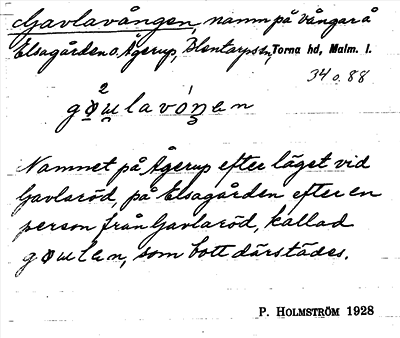 Gavlavången, namn på vångar å
Elsagården o. Ågerup, Blentarps sn, Torna hd, Malm. l.
34 o. 88
2
gɷulavóŋen
Namnet på Ågerup efter läget vid
Gavlaröd, på Elsagården efter en
person från Gavlaröd, kallad
gɷulan, som bott därstädes.
P. HOLMSTRÖM 1928